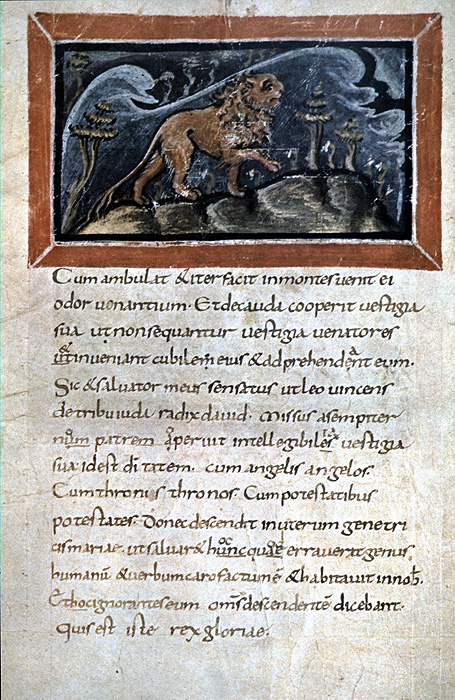 Cum ambulat & iter facit in montes uenit ei
odor uenantium. Et de cauda cooperit uestigia
sua ut non sequantur uestigia uenatores
& inueniant cubilem eius & adprehendant eum.
Sic & saluator meus sensatus ut leo uincens
de tribu iuda radix dauid. Missus a sempiter
num patrem aperuit intellegibiles uestigia
sua id est di tatem. cum angelis angelos.
Cum thronis thronos. Cum potestatibus
potestates. Donec descendit in uterum genetri
cis mariae. ut saluar& hunc quae errauerat genus
humanū & uerbum caro factum ē & habitauit in nob.
Et hoc ignorantes eum oms descendentē dicebant.
Quis est iste rex gloriae.